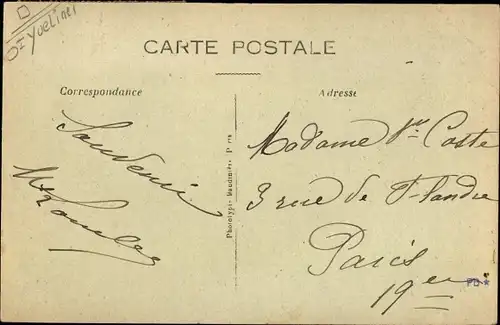 Yvelines
CARTE POSTALE
Correspondance
Adresse
Souvenir
Madame Vve Coste
3 rue de Flandre
Paris
19e
Phototypie Baudinière, Paris